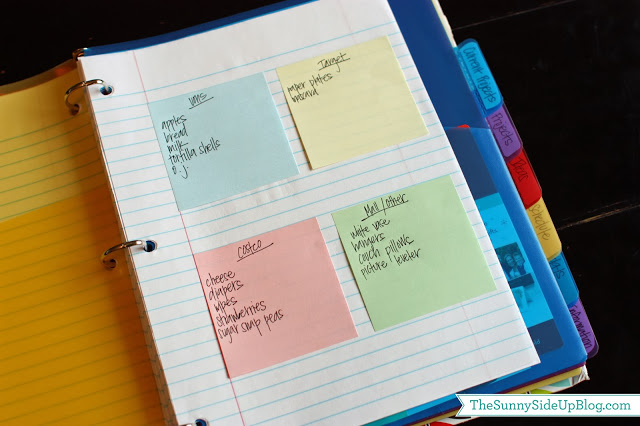 apples
bread
milk
tortilla shells
o.j.
Target
paper plates
mascara
Costco
cheese
diapers
wipes
strawberries
sugar snap peas
Mall/other
white vase
hangers
couch pillows
picture leveler
Current Projects
Projects
Schedule
Information
TheSunnySideUpBlog.com